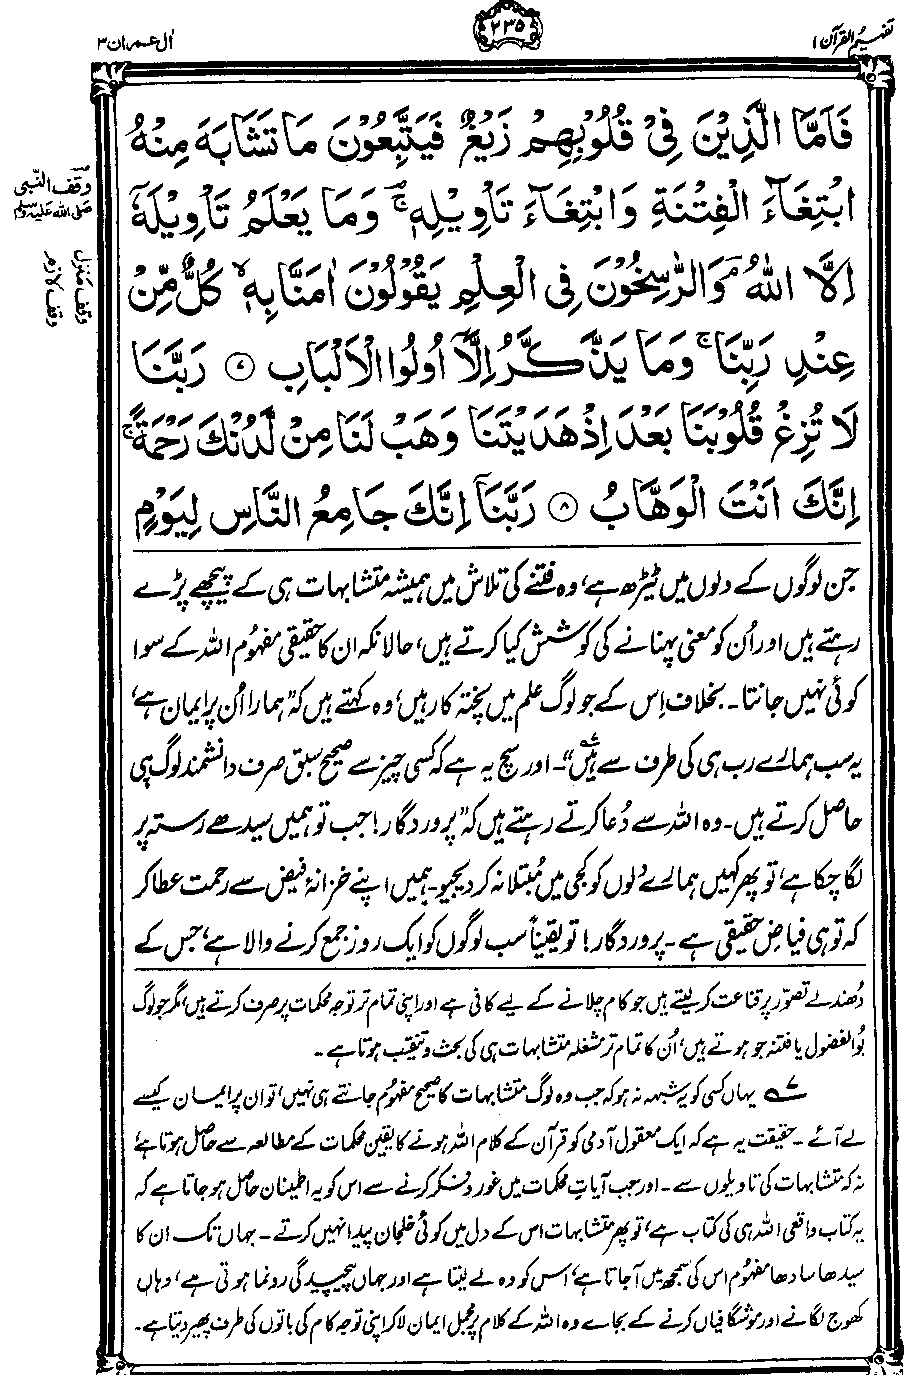 تفہیم القرآن ۱
۲۳۵
اٰل عمران ۳
فَاَمَّا الَّذِیْنَ فِیْ قُلُوْبِهِمْ زَیْغٌ فَیَتَّبِعُوْنَ مَا تَشَابَهَ مِنْهُ
ابْتِغَآءَ الْفِتْنَةِ وَابْتِغَآءَ تَاْوِیْلِهٖ ۚ وَمَا یَعْلَمُ تَاْوِیْلَهٗۤ
وقف النبی
صلی اللہ علیہ وسلم
اِلَّا اللّٰهُ ۘ وَالرّٰسِخُوْنَ فِی الْعِلْمِ یَقُوْلُوْنَ اٰمَنَّا بِهٖ ۙ كُلٌّ مِّنْ
وقف منزل
وقف لازم
عِنْدِ رَبِّنَا ۚ وَمَا یَذَّكَّرُ اِلَّاۤ اُولُوا الْاَلْبَابِ ۷ رَبَّنَا
لَا تُزِغْ قُلُوْبَنَا بَعْدَ اِذْ هَدَیْتَنَا وَهَبْ لَنَا مِنْ لَّدُنْكَ رَحْمَةً ۚ
اِنَّكَ اَنْتَ الْوَهَّابُ ۸ رَبَّنَاۤ اِنَّكَ جَامِعُ النَّاسِ لِیَوْمٍ
جن لوگوں کے دلوں میں ٹیڑھ ہے، وہ فتنے کی تلاش میں ہمیشہ متشابہات ہی کے پیچھے پڑے
رہتے ہیں اور اُن کو معنی پہنانے کی کوشش کیا کرتے ہیں، حالانکہ ان کا حقیقی مفہوم اللہ کے سوا
کوئی نہیں جانتا۔ بخلاف اِس کے جو لوگ علم میں پختہ کار ہیں، وہ کہتے ہیں کہ ”ہمارا اُن پر ایمان ہے،
یہ سب ہمارے رب ہی کی طرف سے ہیں“۔ اور سچ یہ ہے کہ کسی چیز سے صحیح سبق صرف دانشمند لوگ ہی
حاصل کرتے ہیں۔ وہ اللہ سے دُعا کرتے رہتے ہیں کہ ”پروردگار! جب تو ہمیں سیدھے رستہ پر
لگا چکا ہے، تو پھر کہیں ہمارے دلوں کو کجی میں مُبتلا نہ کر دیجیو۔ ہمیں اپنے خزانۂ فیض سے رحمت عطا کر
کہ تو ہی فیاضِ حقیقی ہے۔ پروردگار! تو یقیناً سب لوگوں کو ایک روز جمع کرنے والا ہے، جس کے
دُھندلے تصوّر پر قناعت کر لیتے ہیں جو کام چلانے کے لیے کافی ہے اور اپنی تمام تر توجہ محکمات پر صرف کرتے ہیں، مگر جو لوگ
بُوالفضول یا فتنہ جو ہوتے ہیں، اُن کا تمام تر مشغلہ متشابہات ہی کی بحث و تنقیب ہوتا ہے۔
۷ یہاں کسی کو یہ شبہہ نہ ہو کہ جب وہ لوگ متشابہات کا صحیح مفہوم جانتے ہی نہیں، تو ان پر ایمان کیسے
لے آئے۔ حقیقت یہ ہے کہ ایک معقول آدمی کو قرآن کے کلام اللہ ہونے کا یقین محکمات کے مطالعہ سے حاصل ہوتا ہے
نہ کہ متشابہات کی تاویلوں سے۔ اور جب آیاتِ محکمات میں غور و فکر کرنے سے اس کو یہ اطمینان حاصل ہو جاتا ہے کہ
یہ کتاب واقعی اللہ ہی کی کتاب ہے، تو پھر متشابہات اس کے دل میں کوئی خلجان پیدا نہیں کرتے۔ جہاں تک ان کا
سیدھا سادھا مفہوم اس کی سمجھ میں آجاتا ہے، اس کو وہ لے لیتا ہے اور جہاں پیچیدگی رونما ہوتی ہے، وہاں
کھوج لگانے اور موشگافیاں کرنے کے بجائے وہ اللہ کے کلام پر مجمل ایمان لا کر اپنی توجہ کام کی باتوں کی طرف پھیر دیتا ہے۔